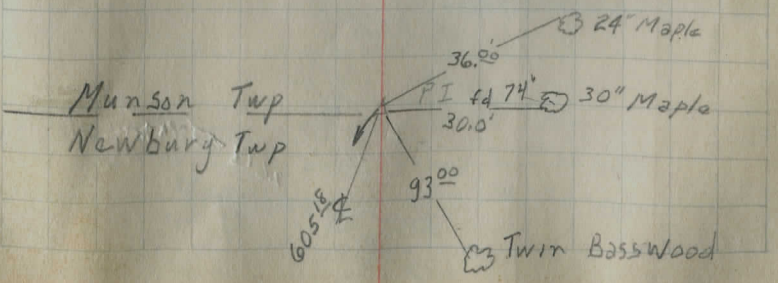 24" Maple
36.00'
Munson Twp
PI fd 74" 30" Maple
30.0'
Newbury Twp
93 00
605 18 ℄
Twin Basswood